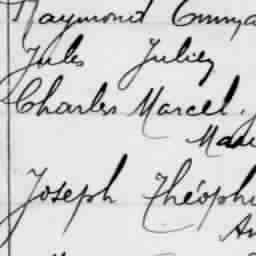 Raymond
Jules Julien
Charles Marcel
Joseph Théophi